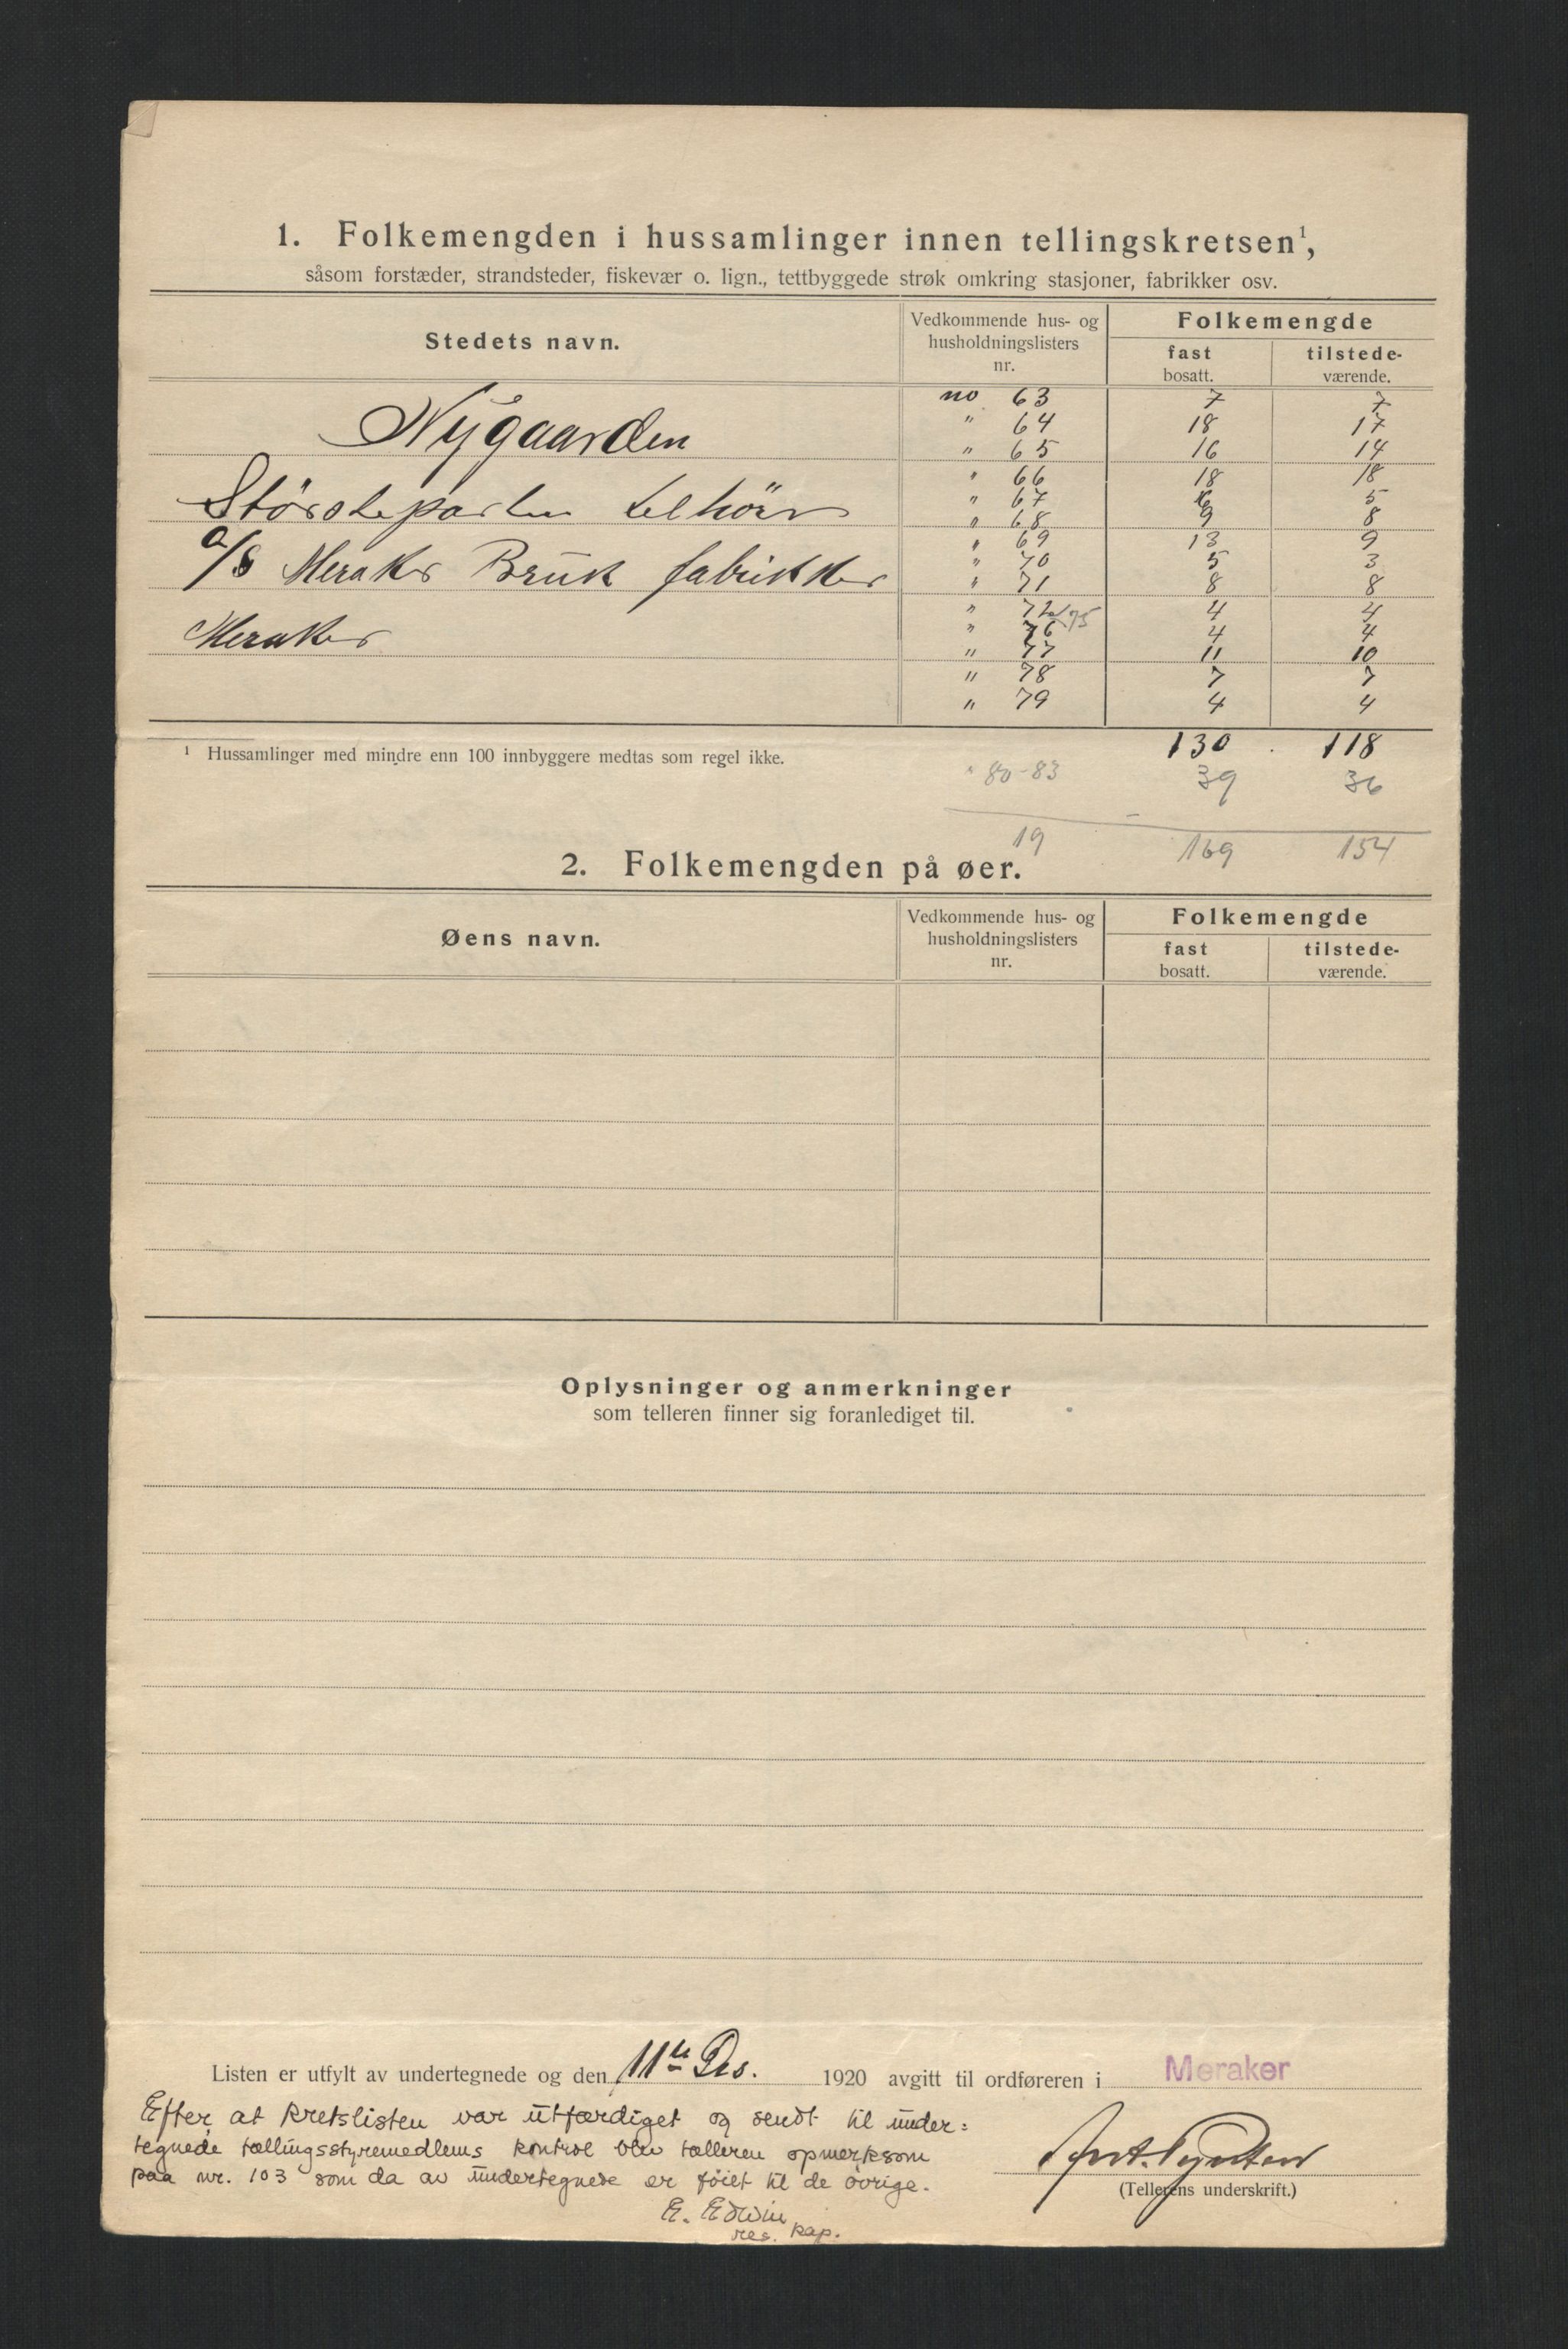 1. Folkemengden i hussamlinger innen tellingskretsen¹,
såsom forstæder, strandsteder, fiskevær o. lign., tettbyggede strøk omkring stasjoner, fabrikker osv.
Stedets navn.
Vedkommende hus- og husholdningslisters nr.
Folkemengde
fast bosatt.
tilstede-værende.
Nygaarden
Størsteparten tilhörer
a/s Meraker Bruk fabrikker
Meraker
no 63 7 7
" 64 18 17
" 65 16 14
" 66 18 18
" 67 6 5
" 68 9 8
" 69 13 9
" 70 5 3
" 71 8 8
" 72 75 4 4
" 76 4 4
" 77 11 10
" 78 7 7
" 79 4 4
130 118
¹ Hussamlinger med mindre enn 100 innbyggere medtas som regel ikke.
" 80-83 39 36
19 169 154
2. Folkemengden på øer.
Øens navn.
Vedkommende hus- og husholdningslisters nr.
Folkemengde
fast bosatt.
tilstede-værende.
Oplysninger og anmerkninger
som telleren finner sig foranlediget til.
Listen er utfylt av undertegnede og den 11te Des. 1920 avgitt til ordføreren i Meraker
Efter at kretslisten var utfærdiget og sendt til under=
tegnede tællingsstyremedlems kontrol blev tælleren opmerksom
paa nr. 103 som da av undertegnede er föiet til de övrige.
E. Edwin
res. kap.
(Tellerens underskrift.)